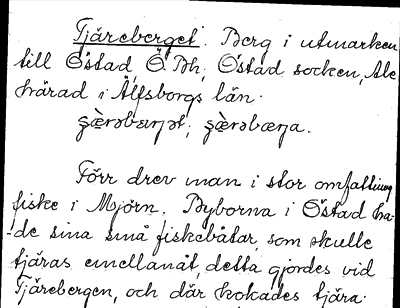 Tjäreberget. Berg i utmarken
till Östad Ö. Bh, Östad socken, Ale
härad i Älfsborgs län.
Förr drev man i stor omfattning
fiske i Mjörn. Byborna i Östad ha-
de sina små fiskebåtar, som skulle
tjäras emellanåt, detta gjordes vid
Tjärebergen, och där kokades tjära.